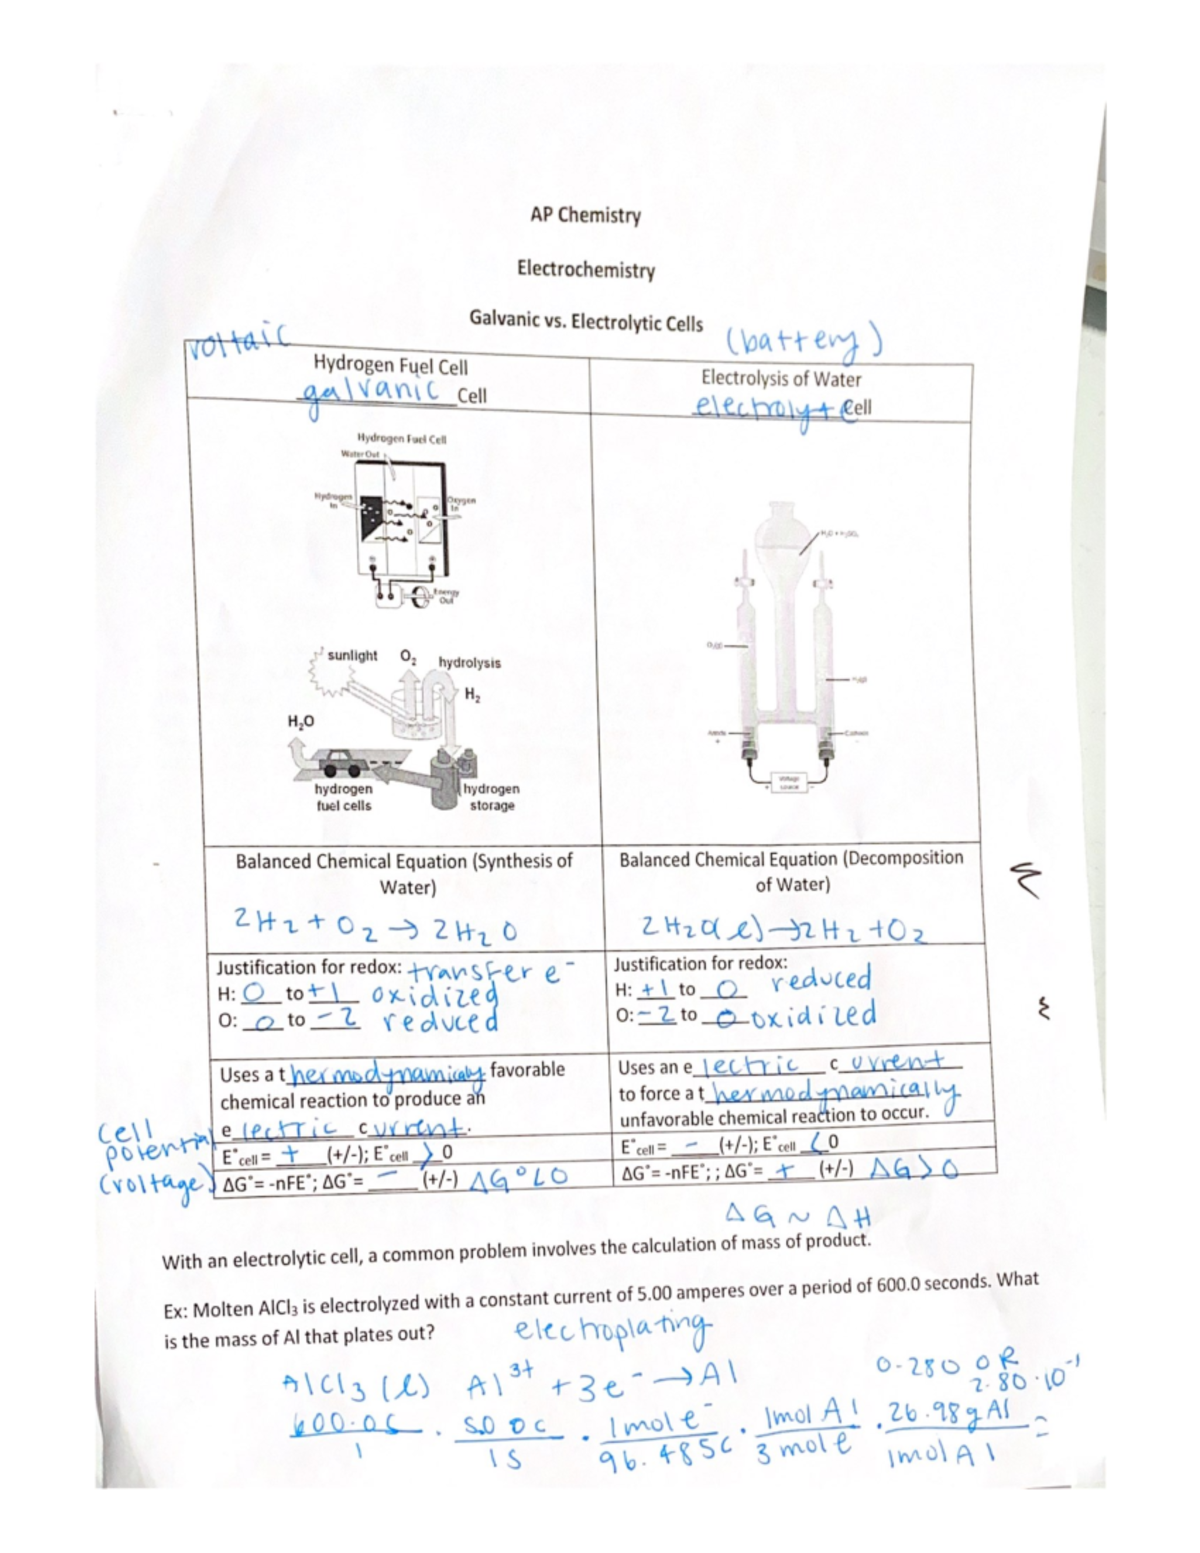 AP Chemistry
Electrochemistry
Galvanic vs. Electrolytic Cells
voltaic
(battery)
Hydrogen Fuel Cell
galvanic Cell
Electrolysis of Water
electrolyt Cell
Hydrogen Fuel Cell
Water Out
Hydrogen In
Oxygen In
Energy Out
sunlight O₂ hydrolysis
H₂
H₂O
hydrogen fuel cells
hydrogen storage
Voltage source
Balanced Chemical Equation (Synthesis of
Water)
2H₂ + O₂ → 2H₂O
Balanced Chemical Equation (Decomposition
of Water)
2H₂O(l) → 2H₂ + O₂
Justification for redox: transfer e⁻
H: 0 to +1 oxidized
O: 0 to -2 reduced
Justification for redox:
H: +1 to 0 reduced
O: -2 to 0 oxidized
Uses a thermodynamicaly favorable
chemical reaction to produce an
electric current.
Uses an electric current
to force a thermodynamically
unfavorable chemical reaction to occur.
cell
potential
(voltage)
E°cell = + (+/-); E°cell > 0
ΔG°= -nFE°; ΔG°= - (+/-) ΔG°<0
E°cell = - (+/-); E°cell < 0
ΔG°= -nFE°; ; ΔG°= + (+/-) ΔG>0
ΔG ~ ΔH
With an electrolytic cell, a common problem involves the calculation of mass of product.
Ex: Molten AlCl₃ is electrolyzed with a constant current of 5.00 amperes over a period of 600.0 seconds. What
is the mass of Al that plates out?
electroplating
AlCl₃(l) Al³⁺ + 3e⁻ → Al
0.280 OR
2.80·10⁻¹
600.0s/1 · 5.00C/1s · 1mole⁻/96.485C · 1mol Al/3 mol e · 26.98g Al/1mol Al =